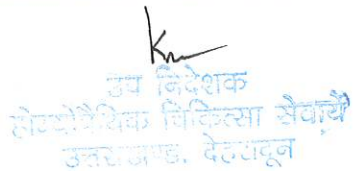 उप निदेशक
होम्योपैथिक चिकित्सा सेवायें
उत्तराखण्ड, देहरादून